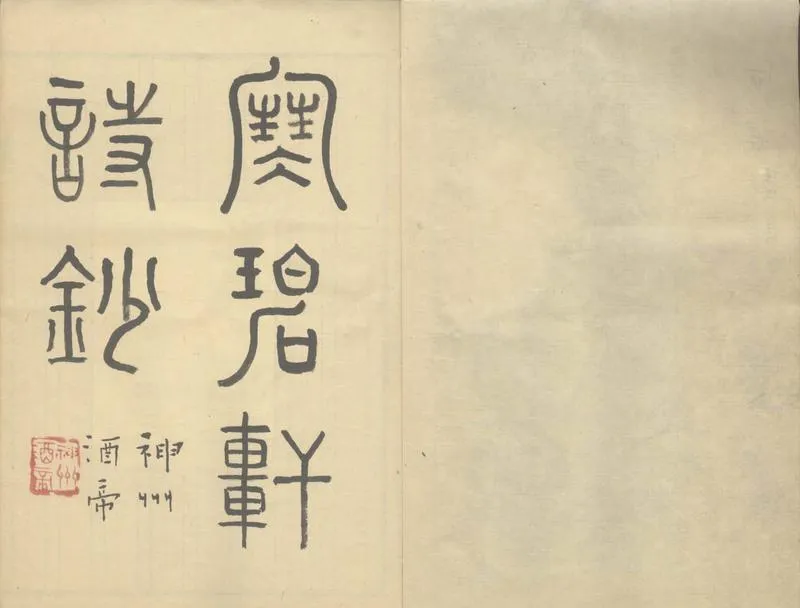 寒碧軒
詩鈔
神州
酒帝
神州
酒帝